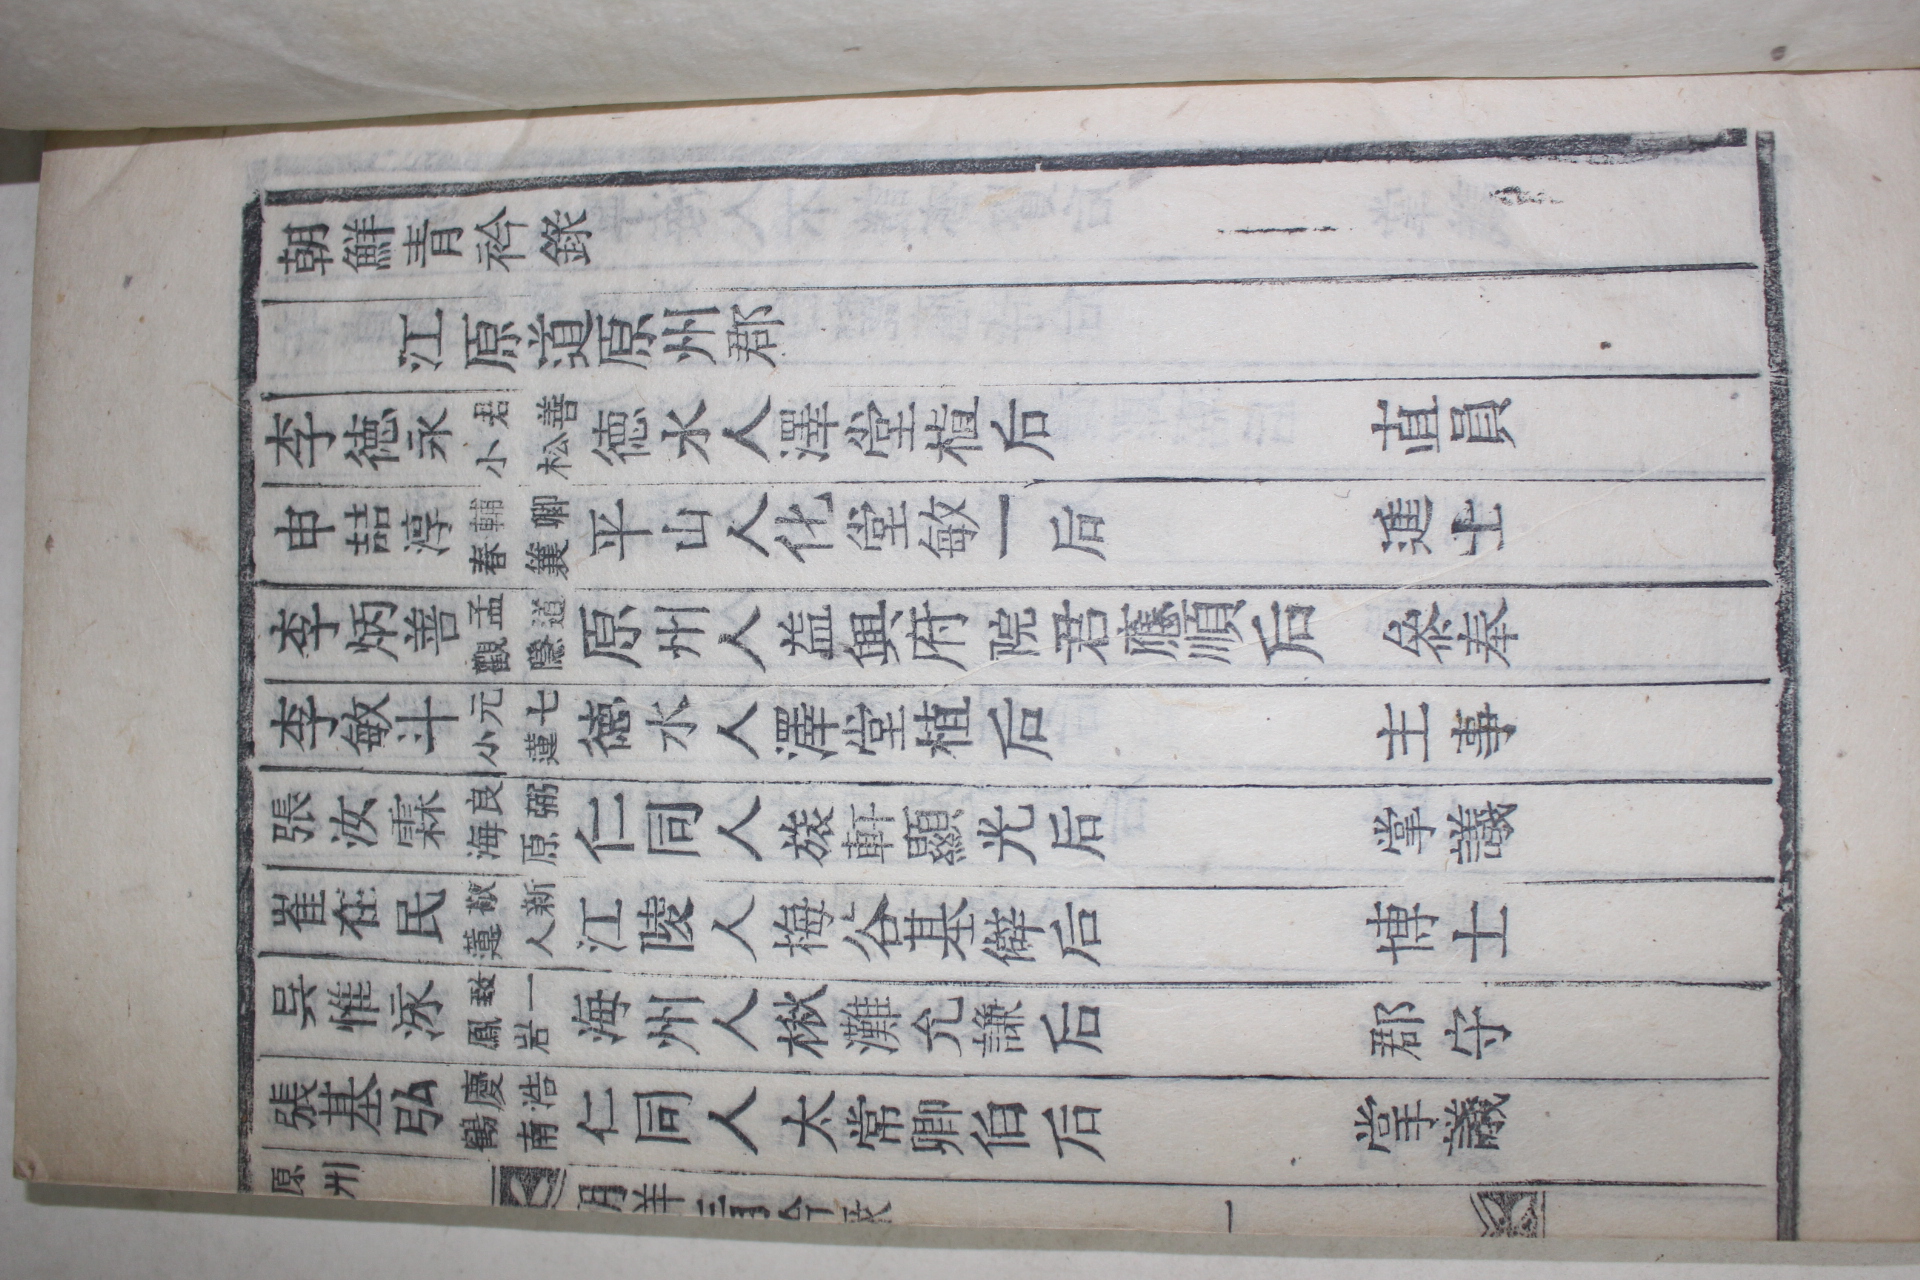 朝鮮青衿錄
江原道原州郡
李徳永 君善 小松 徳水人澤堂植后 直員
申喆淳 輔卿 春簑 平山人化堂敏一后 進士
李炳善 孟道 觀隱 原州人益興府院君應順后 叅奉
李敏斗 元七 小蓮 徳水人澤堂植后 主事
張汝霖 良弼 海原 仁同人旅軒顯光后 掌議
崔在民 敬新 蓮人 江陵人梅谷基僻后 博士
吳惟泳 致一 鳳岩 海州人楸灘允謙后 郡守
張基弘 慶浩 鶴南 仁同人太常卿伯后 掌議
原州 朝鮮青衿錄 一